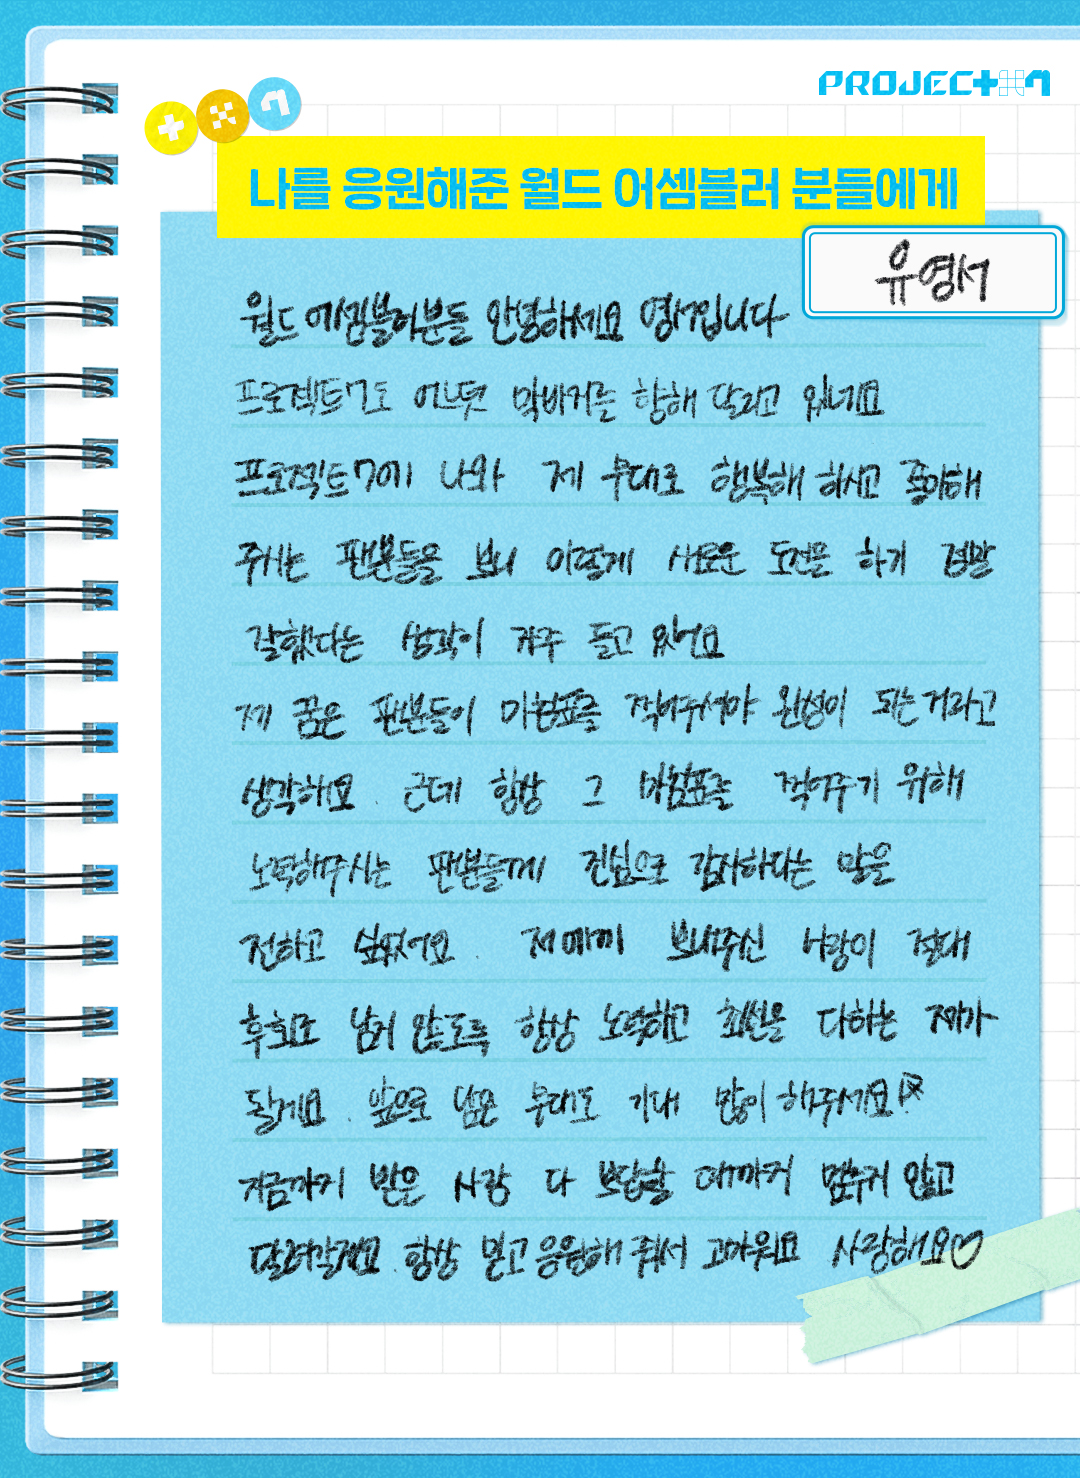 PROJECT 7
나를 응원해준 월드 어셈블러 분들에게
유영서
월드 어셈블러분들 안녕하세요 영서입니다
프로젝트7도 어느덧 막바지를 향해 달리고 있네요
프로젝트7에 나와 제 무대로 행복해 하시고 좋아해
주시는 팬분들을 보니 이렇게 새로운 도전을 하기 정말
잘했다는 생각이 자주 들고 있어요
제 꿈은 팬분들이 마침표를 찍어주셔야 완성이 되는거라고
생각해요. 근데 항상 그 마침표를 찍어주기 위해
노력해주시는 팬분들께 진심으로 감사하다는 말을
전하고 싶었어요. 저에게 보내주신 사랑이 절대
후회로 남지 않도록 항상 노력하고 최선을 다하는 제가
될게요. 앞으로 남은 무대도 기대 많이 해주세요!
지금까지 받은 사랑 다 보답할 때까지 멈추지 않고
달려갈게요. 항상 믿고 응원해 줘서 고마워요 사랑해요♡